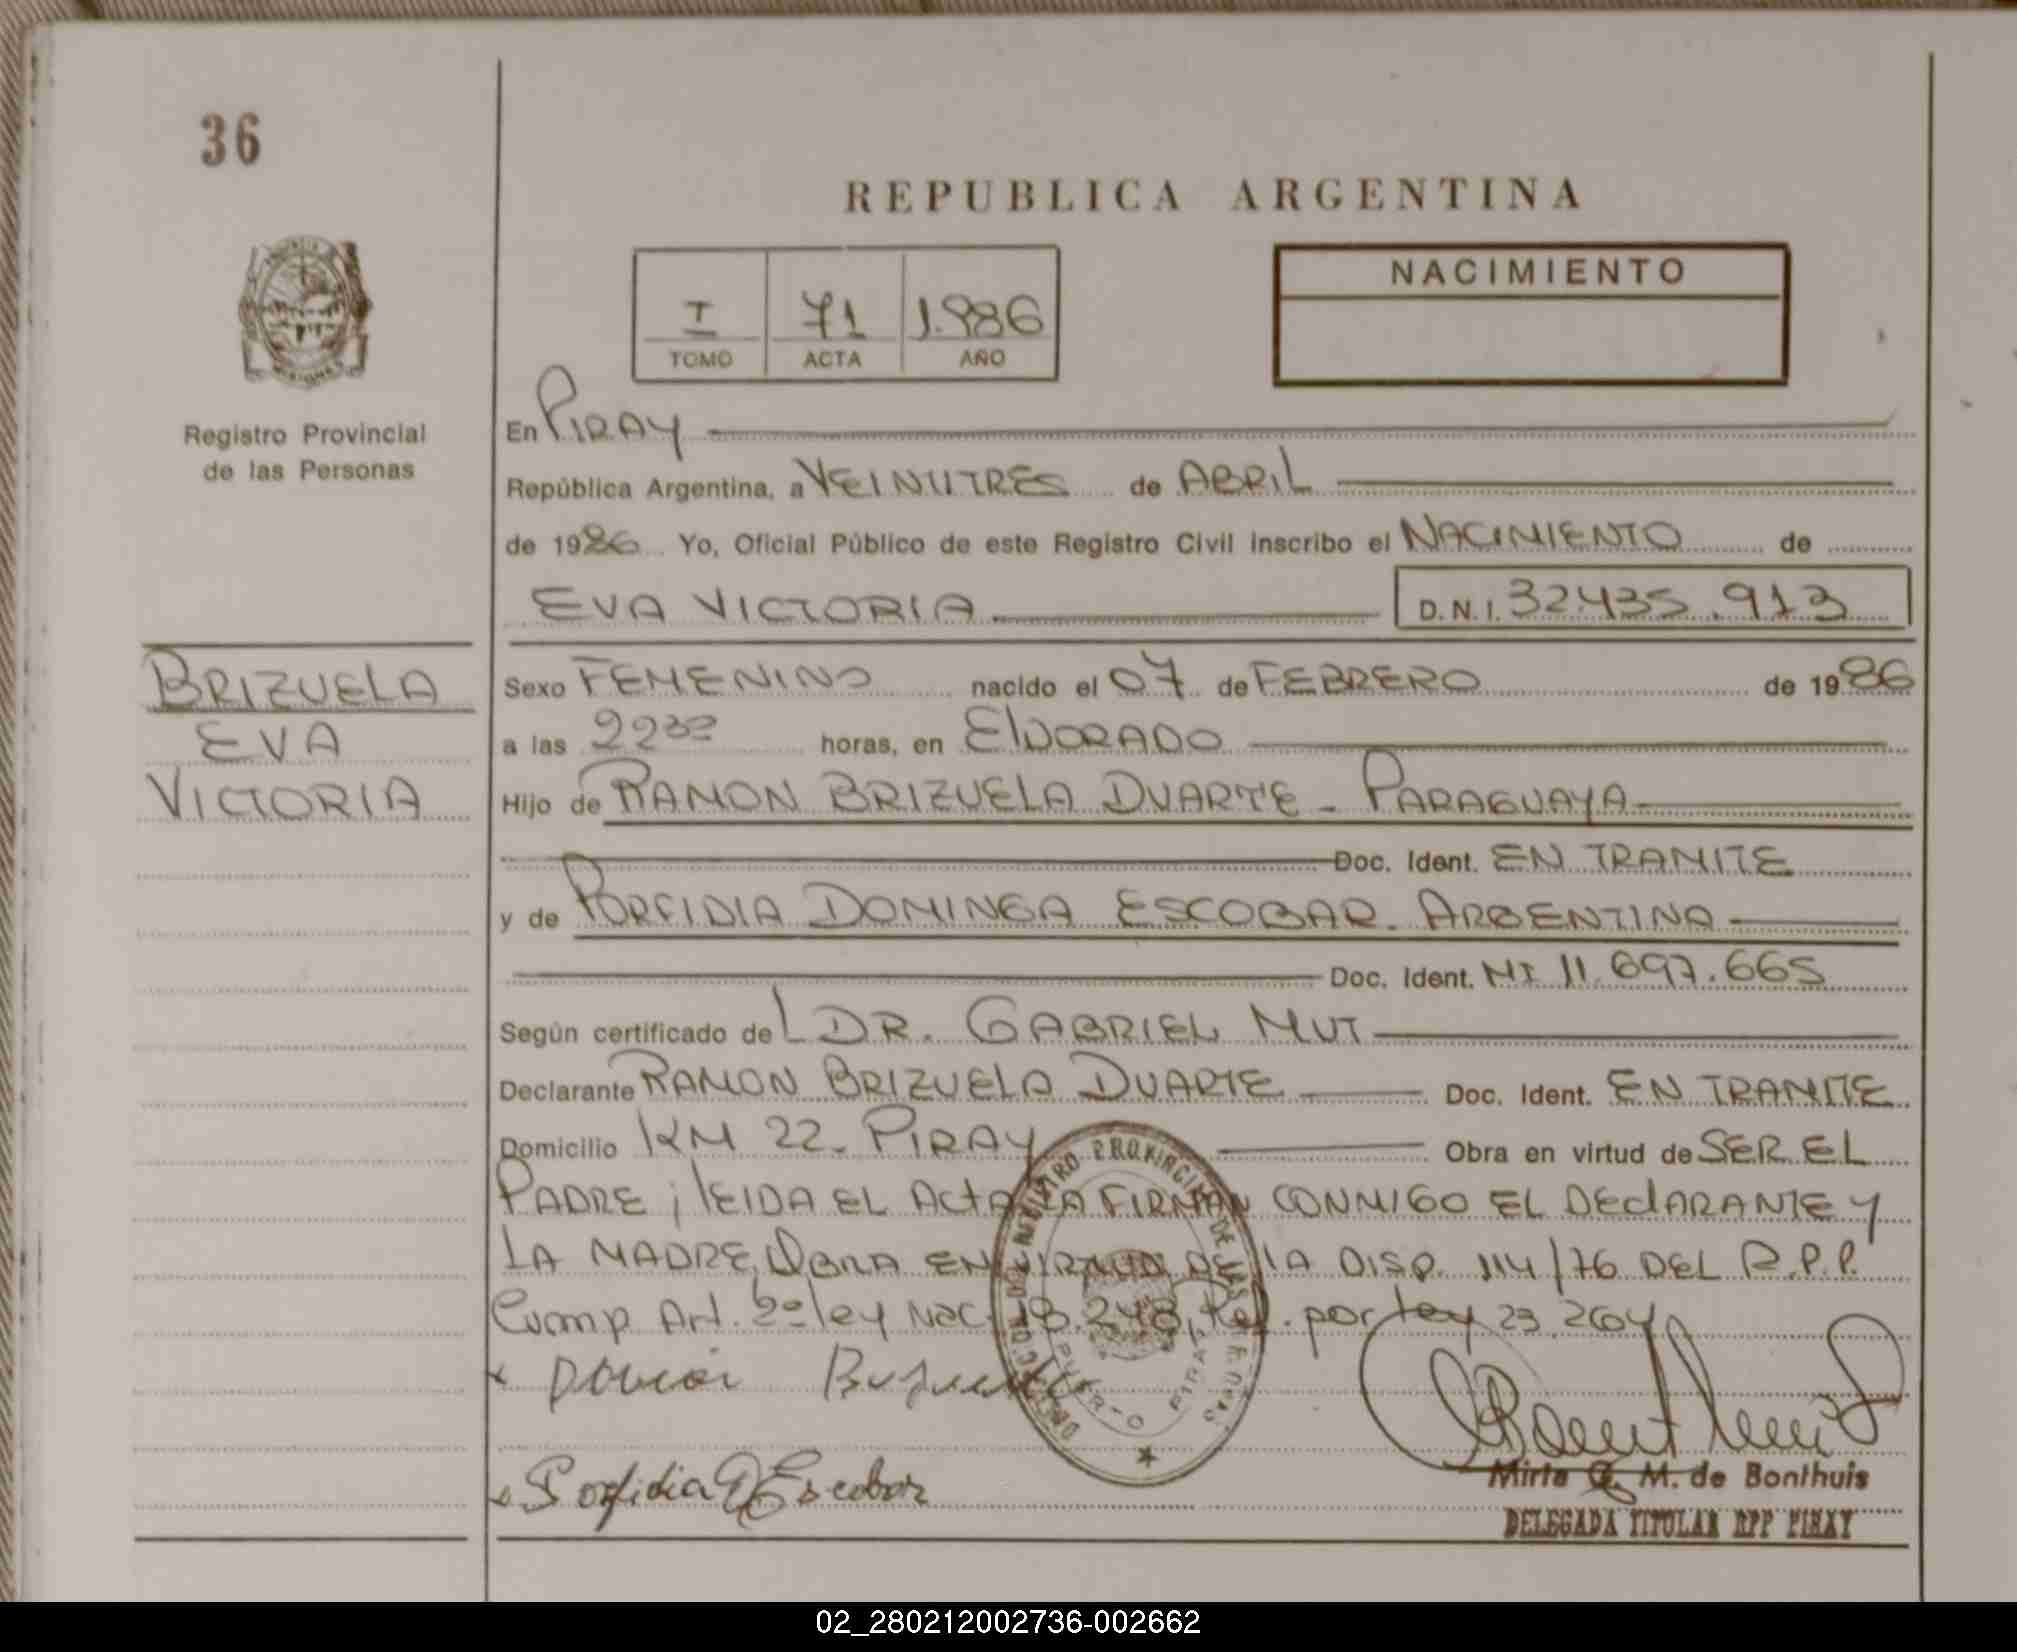 36
REPUBLICA ARGENTINA
NACIMIENTO
I 71 1.986
TOMO ACTA AÑO
Registro Provincial
de las Personas
En PIRAY
República Argentina, a VEINTITRES de ABRIL
de 1986 Yo, Oficial Público de este Registro Civil inscribo el NACIMIENTO de
EVA VICTORIA D.N.I. 32.435.913
BRIZUELA
EVA
VICTORIA
Sexo FEMENINO nacido el 07 de FEBRERO de 1986
a las 2230 horas, en ElDORADO
Hijo de RAMON BRIZUELA DUARTE - PARAGUAYA
Doc. Ident. EN TRAMITE
y de PORFIDIA DOMINGA ESCOBAR - ARGENTINA
Doc. Ident. MI 11.697.665
Según certificado de L DR. GABRIEL MUT
Declarante RAMON BRIZUELA DUARTE Doc. Ident. EN TRAMITE
Domicilio KM 22 - PIRAY Obra en virtud de SER EL
PADRE; lEIDA EL ACTA LA FIRMAN CONMIGO EL DEClARANTE Y
LA MADRE, OBRA EN VIRTUD DE lA DISP. 114/76 DEL R.P.P.
Cump. Art. 2º ley Nac. 18.248, Ref. por ley 23.264
Porfidia D Escobar
REGISTRO PROVINCIAL DE LAS PERSONAS
PUERTO PIRAY
Mirta G. M. de Bonthuis
DELEGADA TITULAR RPP PIRAY
02_280212002736-002662